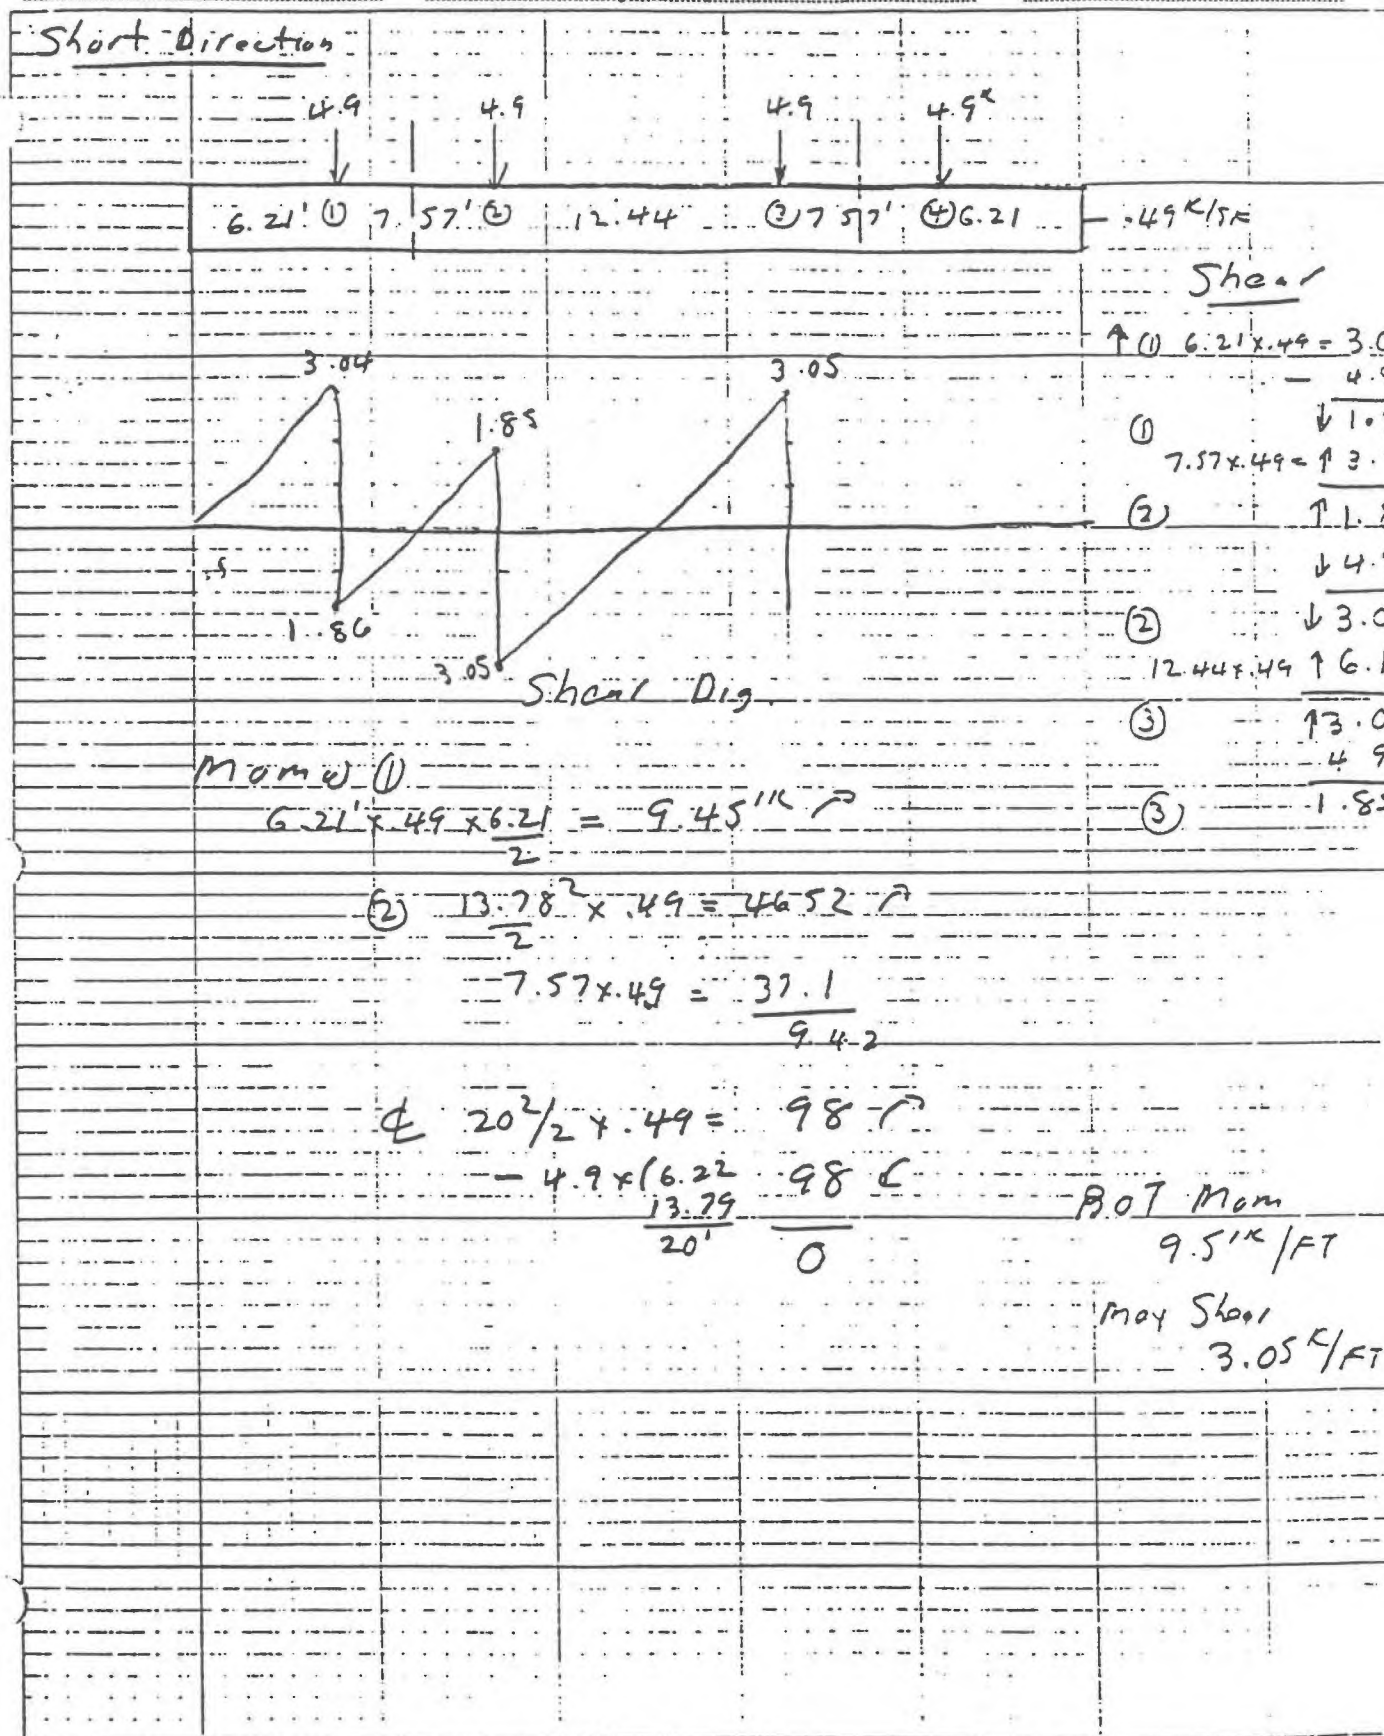 Short Direction
4.9 4.9 4.9 4.9ᴷ
6.21' ① 7.57' ② 12.44 ③ 7 57' ④ 6.21 .49 ᴷ/SF
Shear
↑ ① 6.21 x .49 = 3.0
- 4.9
① ↓ 1.
7.57 x .49 = ↑ 3.
② ↑ 1.8
↓ 4.9
② ↓ 3.0
12.44 x .49 ↑ 6.1
③ ↑ 3.0
4 9
③ 1.85
3.04 3.05
1.85
.5
1.86
3.05
Shear Dig.
Mom @ ①
6.21' x .49 x 6.21/2 = 9.45'ᴷ
② 13.78²/2 x .49 = 46 52
7.57 x .49 = 37.1
9.42
℄ 20²/2 x .49 = 98
- 4.9 x (6.22 98
13.79
20' 0
BOT Mom
9.5'ᴷ/FT
Max Shear
3.05 ᴷ/FT